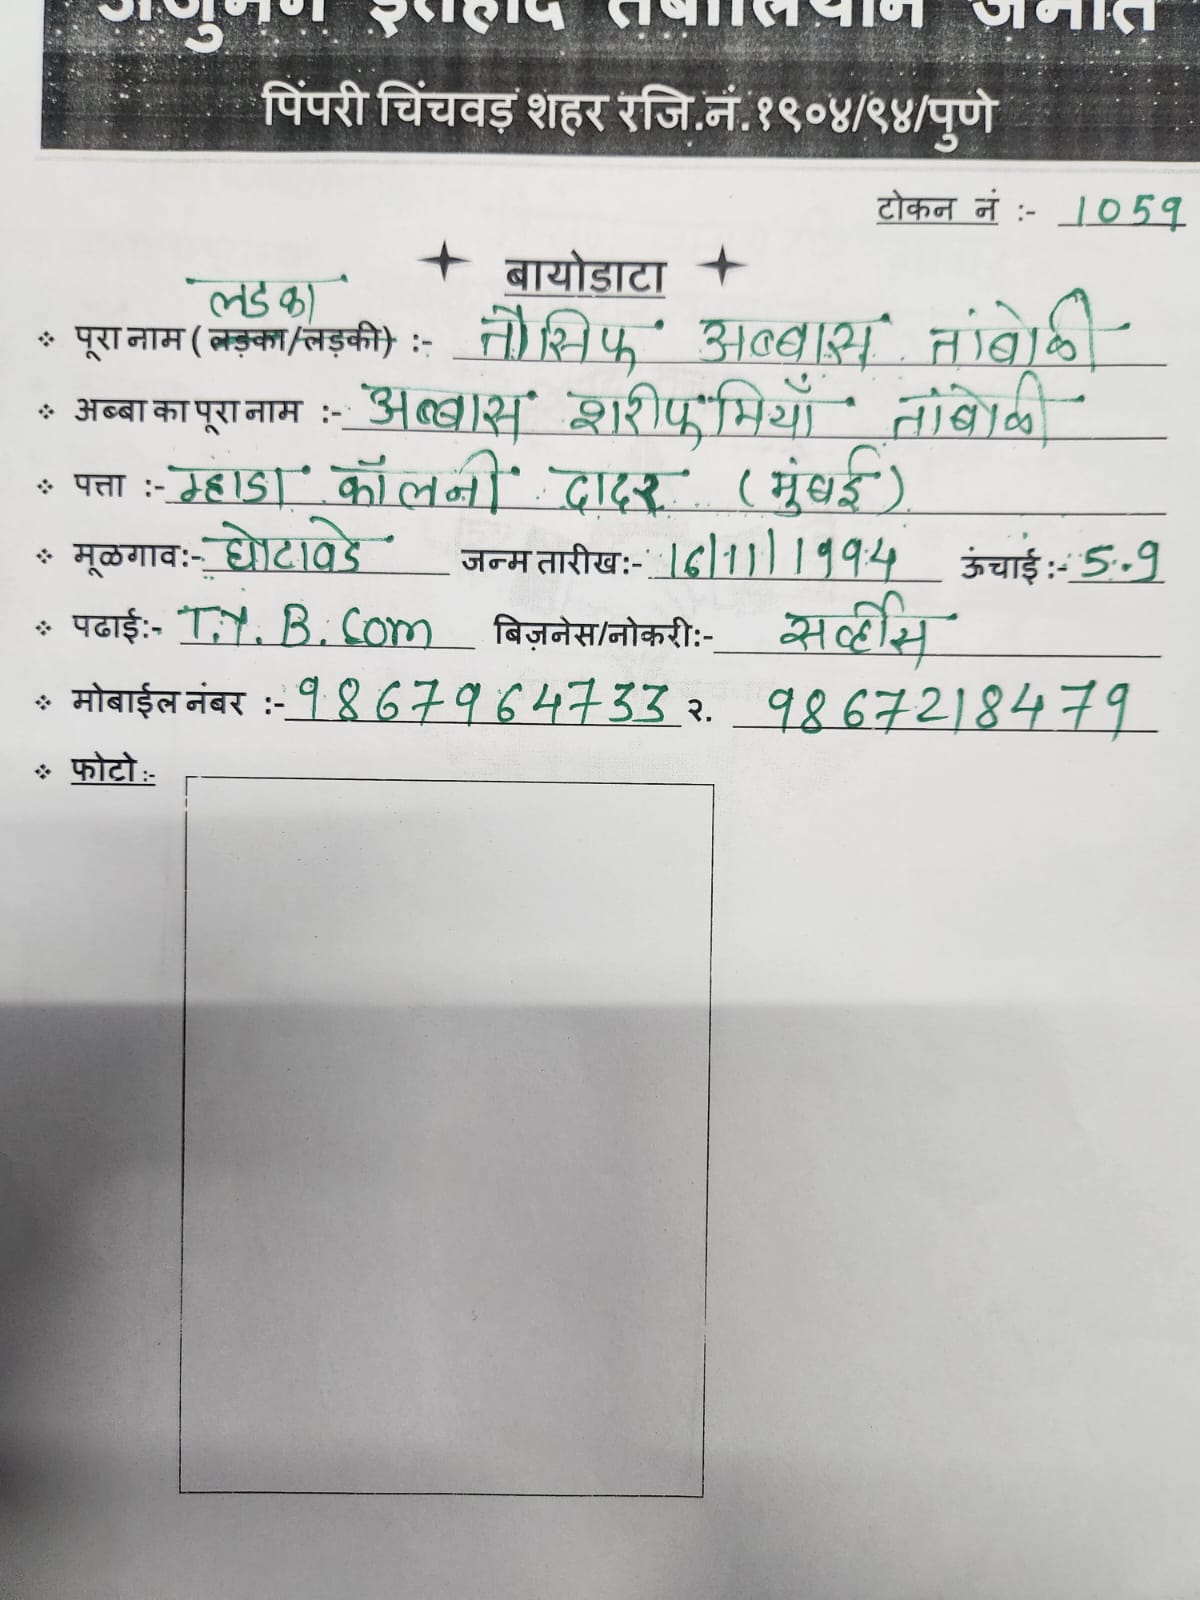 अंजुमन इत्तेहाद तंबोलियान जमात
पिंपरी चिंचवड़ शहर रजि.नं.१९०४/९४/पुणे
टोकन नं :- 1059
बायोडाटा
लडका
पूरा नाम (लड़का/लड़की) :- तौसिफ अब्बास तांबोळी
अब्बा का पूरा नाम :- अब्बास शरीफमियाँ तांबोळी
पत्ता :- म्हाडा कॉलनी दादर (मुंबई)
मूळगाव:- घोटावडे जन्म तारीख:- 16/11/1994 ऊंचाई :- 5.9
पढाई:- T.Y. B. Com बिज़नेस/नोकरी:- सर्व्हीस
मोबाईल नंबर :- 9867964733 २. 9867218479
फोटो :-